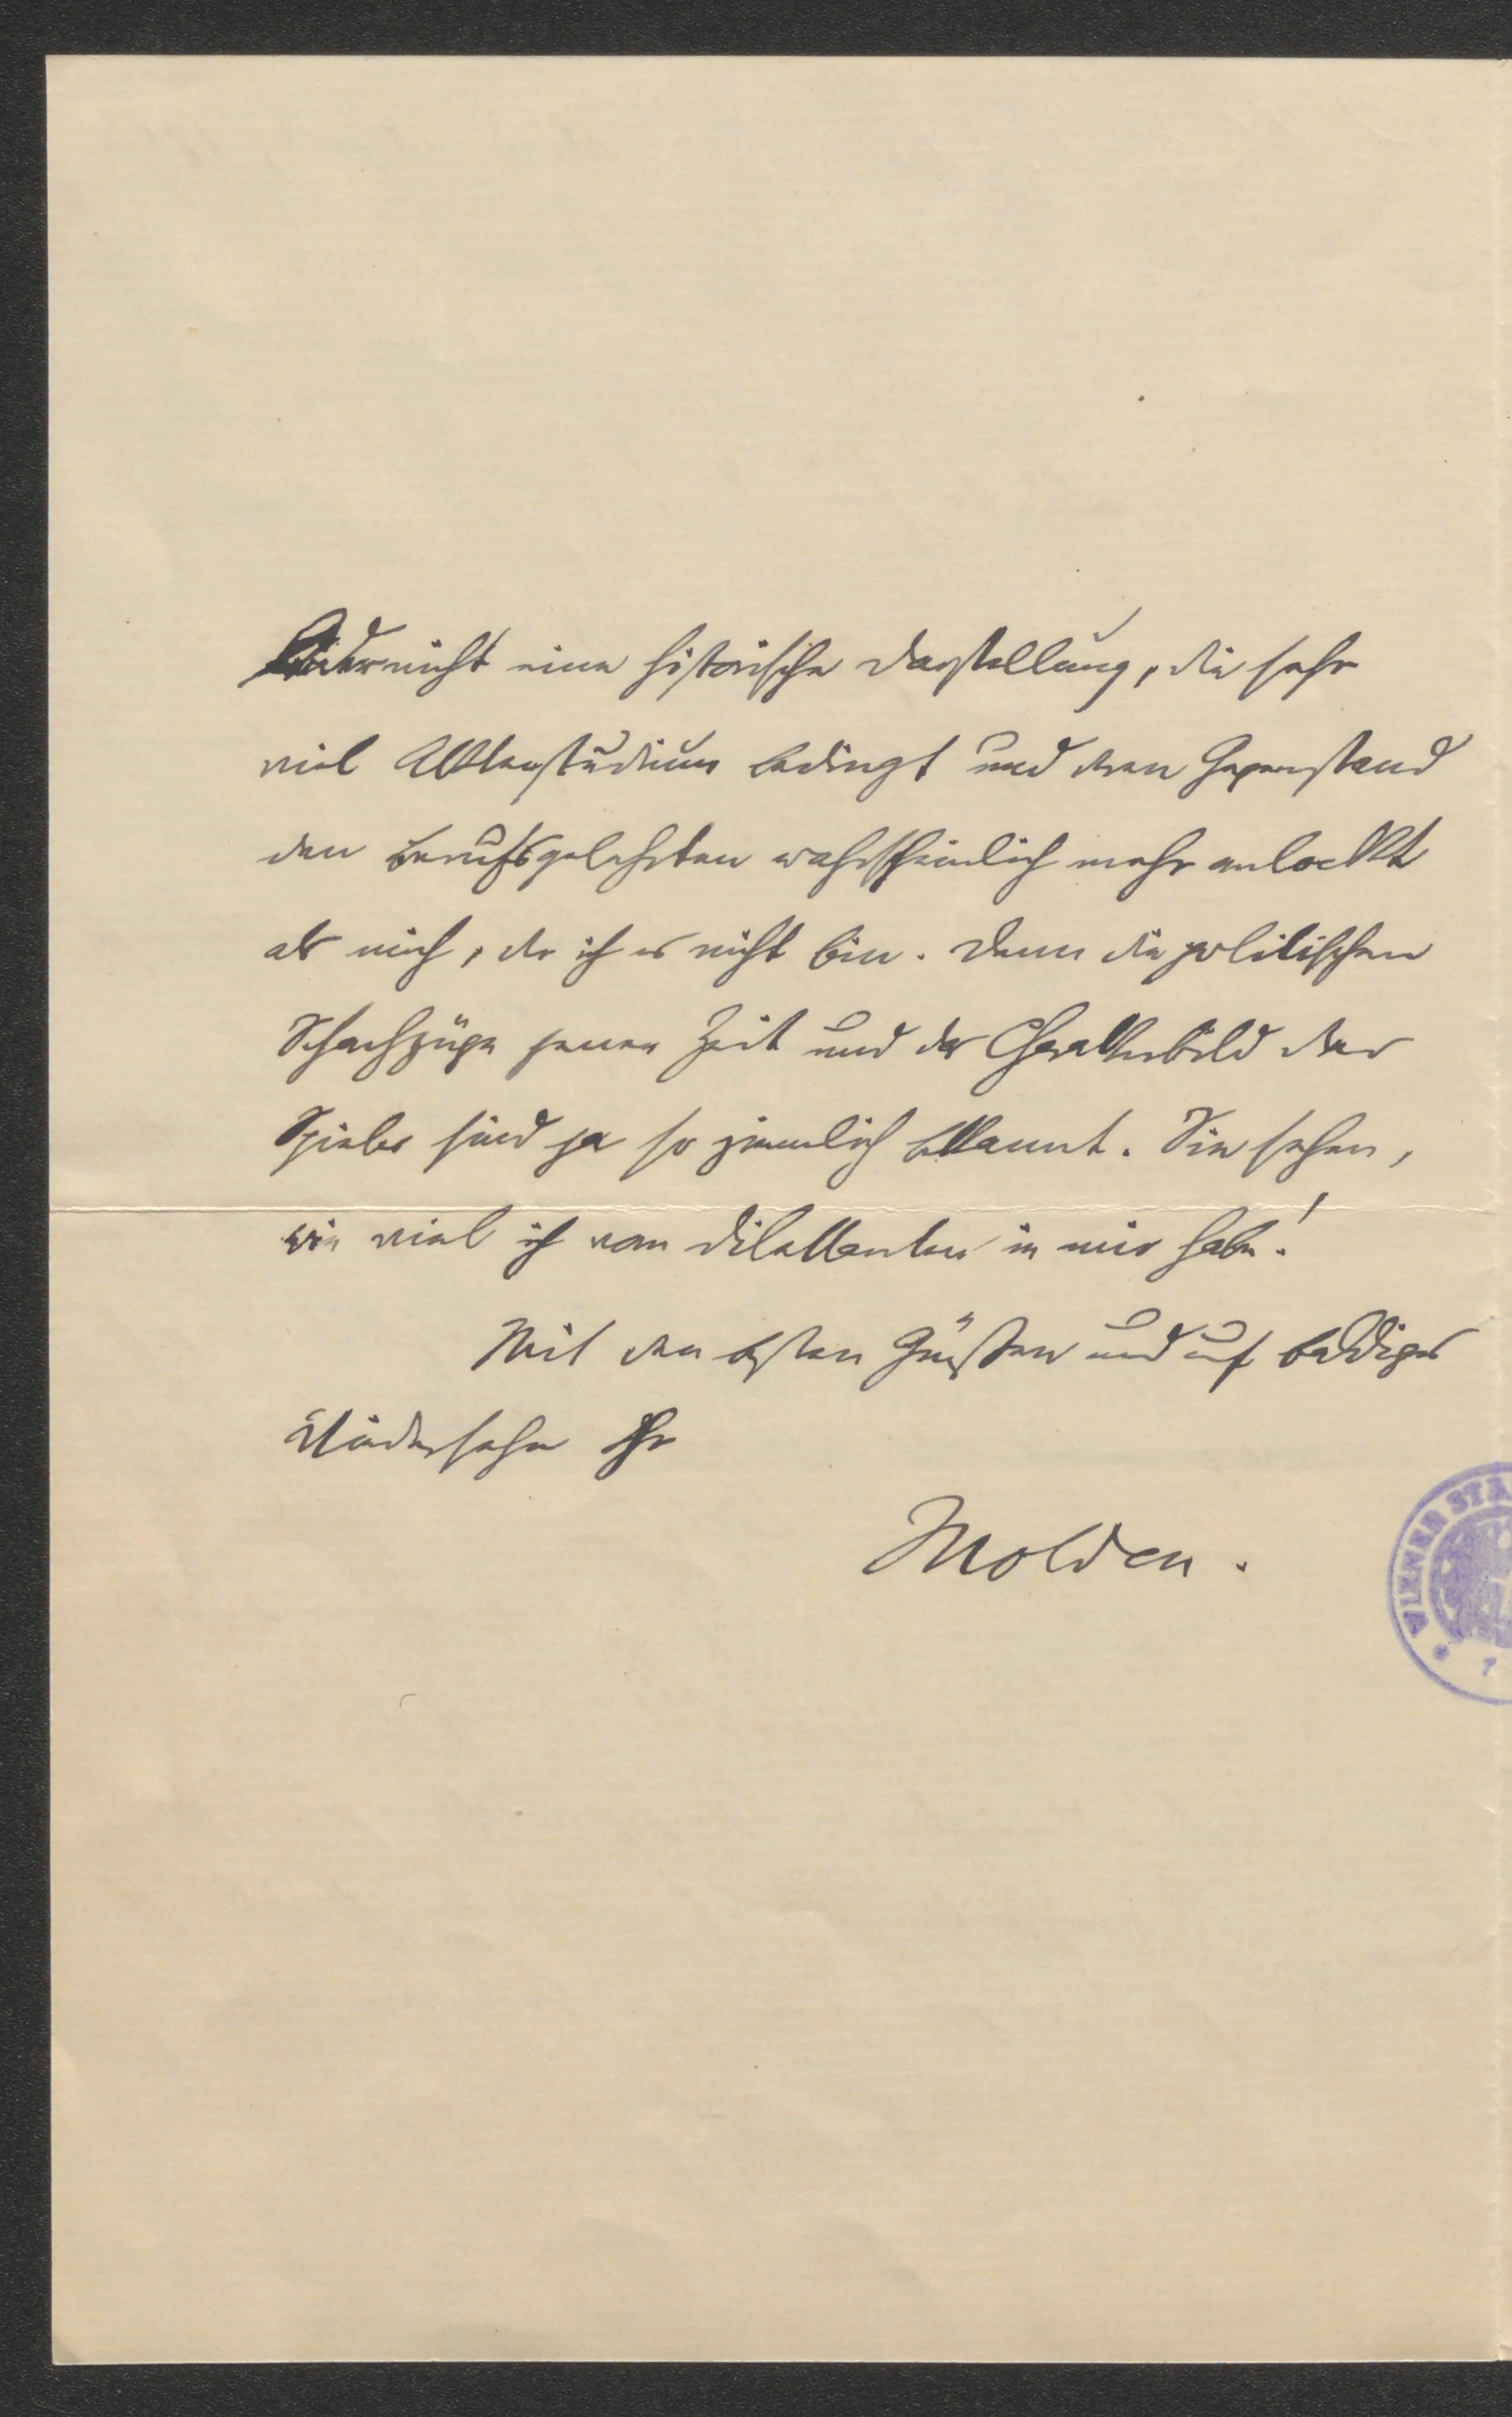 Aber nicht eine historische Darstellung, die sehr
viel Aktenstudium bedingt und deren Gegenstand
den Berufsgelehrten wahrscheinlich mehr anlockt
als mich, der ich es nicht bin. Denn die politischen
Schachzüge jener Zeit und das Charakterbild der
Spieler sind ja so ziemlich bekannt. Sie sehen,
wie viel ich vom Dilettanten in mir habe!
Mit den besten Grüßen und auf baldiges
Wiedersehen Ihr
Molden.
WIENER STÄ